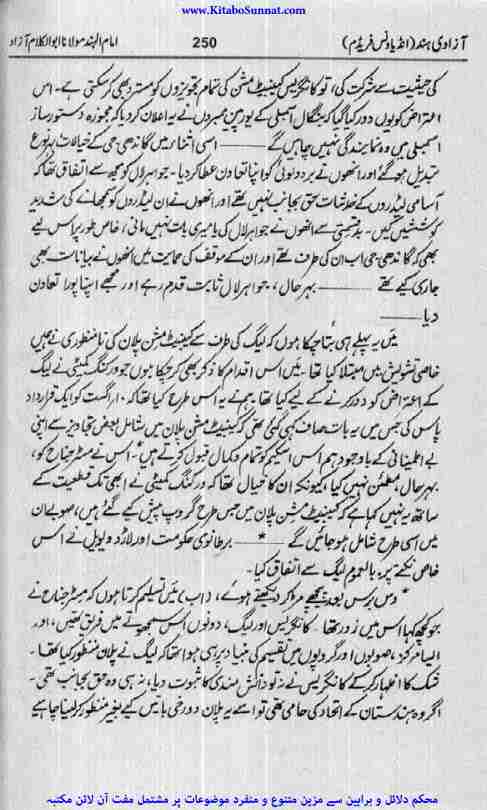 www.KitaboSunnat.com
آزادی ہند (انڈیا ونس فریڈم)
250
امام الہند مولانا ابوالکلام آزاد
کی حیثیت سے شرکت کی، تو کانگریس کیبنیٹ مشن کی تمام تجویزوں کو مسترد بھی کر سکتی ہے۔ اس
اعتراض کو یوں دور کیا گیا کہ بنگال اسمبلی کے یورپین ممبروں نے یہ اعلان کر دیا کہ مجوزہ دستور ساز
اسمبلی میں وہ نمائندگی نہیں چاہیں گے —— اسی اثنا میں گاندھی جی کے خیالات بہ نوع
تبدیل ہو گئے اور انھوں نے بردولوئی کو اپنا تعاون عطا کر دیا۔ جواہر لال کو مجھ سے اتفاق تھا کہ
آسامی لیڈروں کے خدشات حق بجانب نہیں تھے اور انھوں نے ان لیڈروں کو سمجھانے کی شدید
کوششیں کیں۔ بدقسمتی سے انھوں نے جواہر لال کی یا میری بات نہیں مانی، خاص طور پر اس لیے
بھی کہ گاندھی جی اب ان کی طرف تھے اور ان کے موقف کی حمایت میں انھوں نے بیانات بھی
جاری کیے تھے —— بہر حال، جواہر لال ثابت قدم رہے اور مجھے اپنا پورا تعاون
دیا ——
میں یہ پہلے ہی بتا چکا ہوں کہ لیگ کی طرف سے کیبنیٹ مشن پلان کی نامنظوری نے ہمیں
خاصی تشویش میں مبتلا کیا تھا۔ میں اس اقدام کا ذکر بھی کر چکا ہوں جو ورکنگ کمیٹی نے لیگ
کے اعتراض کو دور کرنے کے لیے کیا تھا۔ ہم نے یہ اس طرح کیا تھا کہ ۱۰ اگست کو ایک قرارداد
پاس کی جس میں یہ بات صاف کہی گئی تھی کہ کیبنیٹ مشن پلان میں شامل بعض تجاویز سے اپنی
بے اطمینانی کے باوجود ہم اس اسکیم کو تمام و کمال قبول کرتے ہیں*۔ اس نے مسٹر جناح کو،
بہر حال، مطمئن نہیں کیا، کیونکہ ان کا خیال تھا کہ ورکنگ کمیٹی نے ابھی تک قطعیت کے
ساتھ یہ نہیں کہا ہے کہ کیبنیٹ مشن پلان میں جس طرح گروپ پیش کیے گئے ہیں، صوبے ان
میں اسی طرح شامل ہو جائیں گے —*— برطانوی حکومت اور لارڈ ویویل نے اس
خاص نکتے پر، بالعموم لیگ سے اتفاق کیا۔
*دس برس بعد پیچھے مڑ کر دیکھتے ہوئے، (اب) میں تسلیم کرتا ہوں کہ مسٹر جناح نے
جو کچھ کہا اس میں زور تھا۔ کانگریس اور لیگ، دونوں اس سمجھوتے میں فریق تھیں، اور
ایسا مرکز، صوبوں اور گروپوں میں تقسیم کی بنیاد پر ہی ہوا تھا کہ لیگ نے پلان منظور کیا تھا۔
شک کا اظہار کر کے کانگریس نے نہ تو دانش مندی کا ثبوت دیا، نہ ہی وہ حق بجانب تھی۔
اگر وہ ہندستان کے اتحاد کی حامی تھی تو اسے یہ پلان دو رخی باتیں کیے بغیر منظور کر لینا چاہیے
محکم دلائل و براہین سے مزین متنوع و منفرد موضوعات پر مشتمل مفت آن لائن مکتبہ